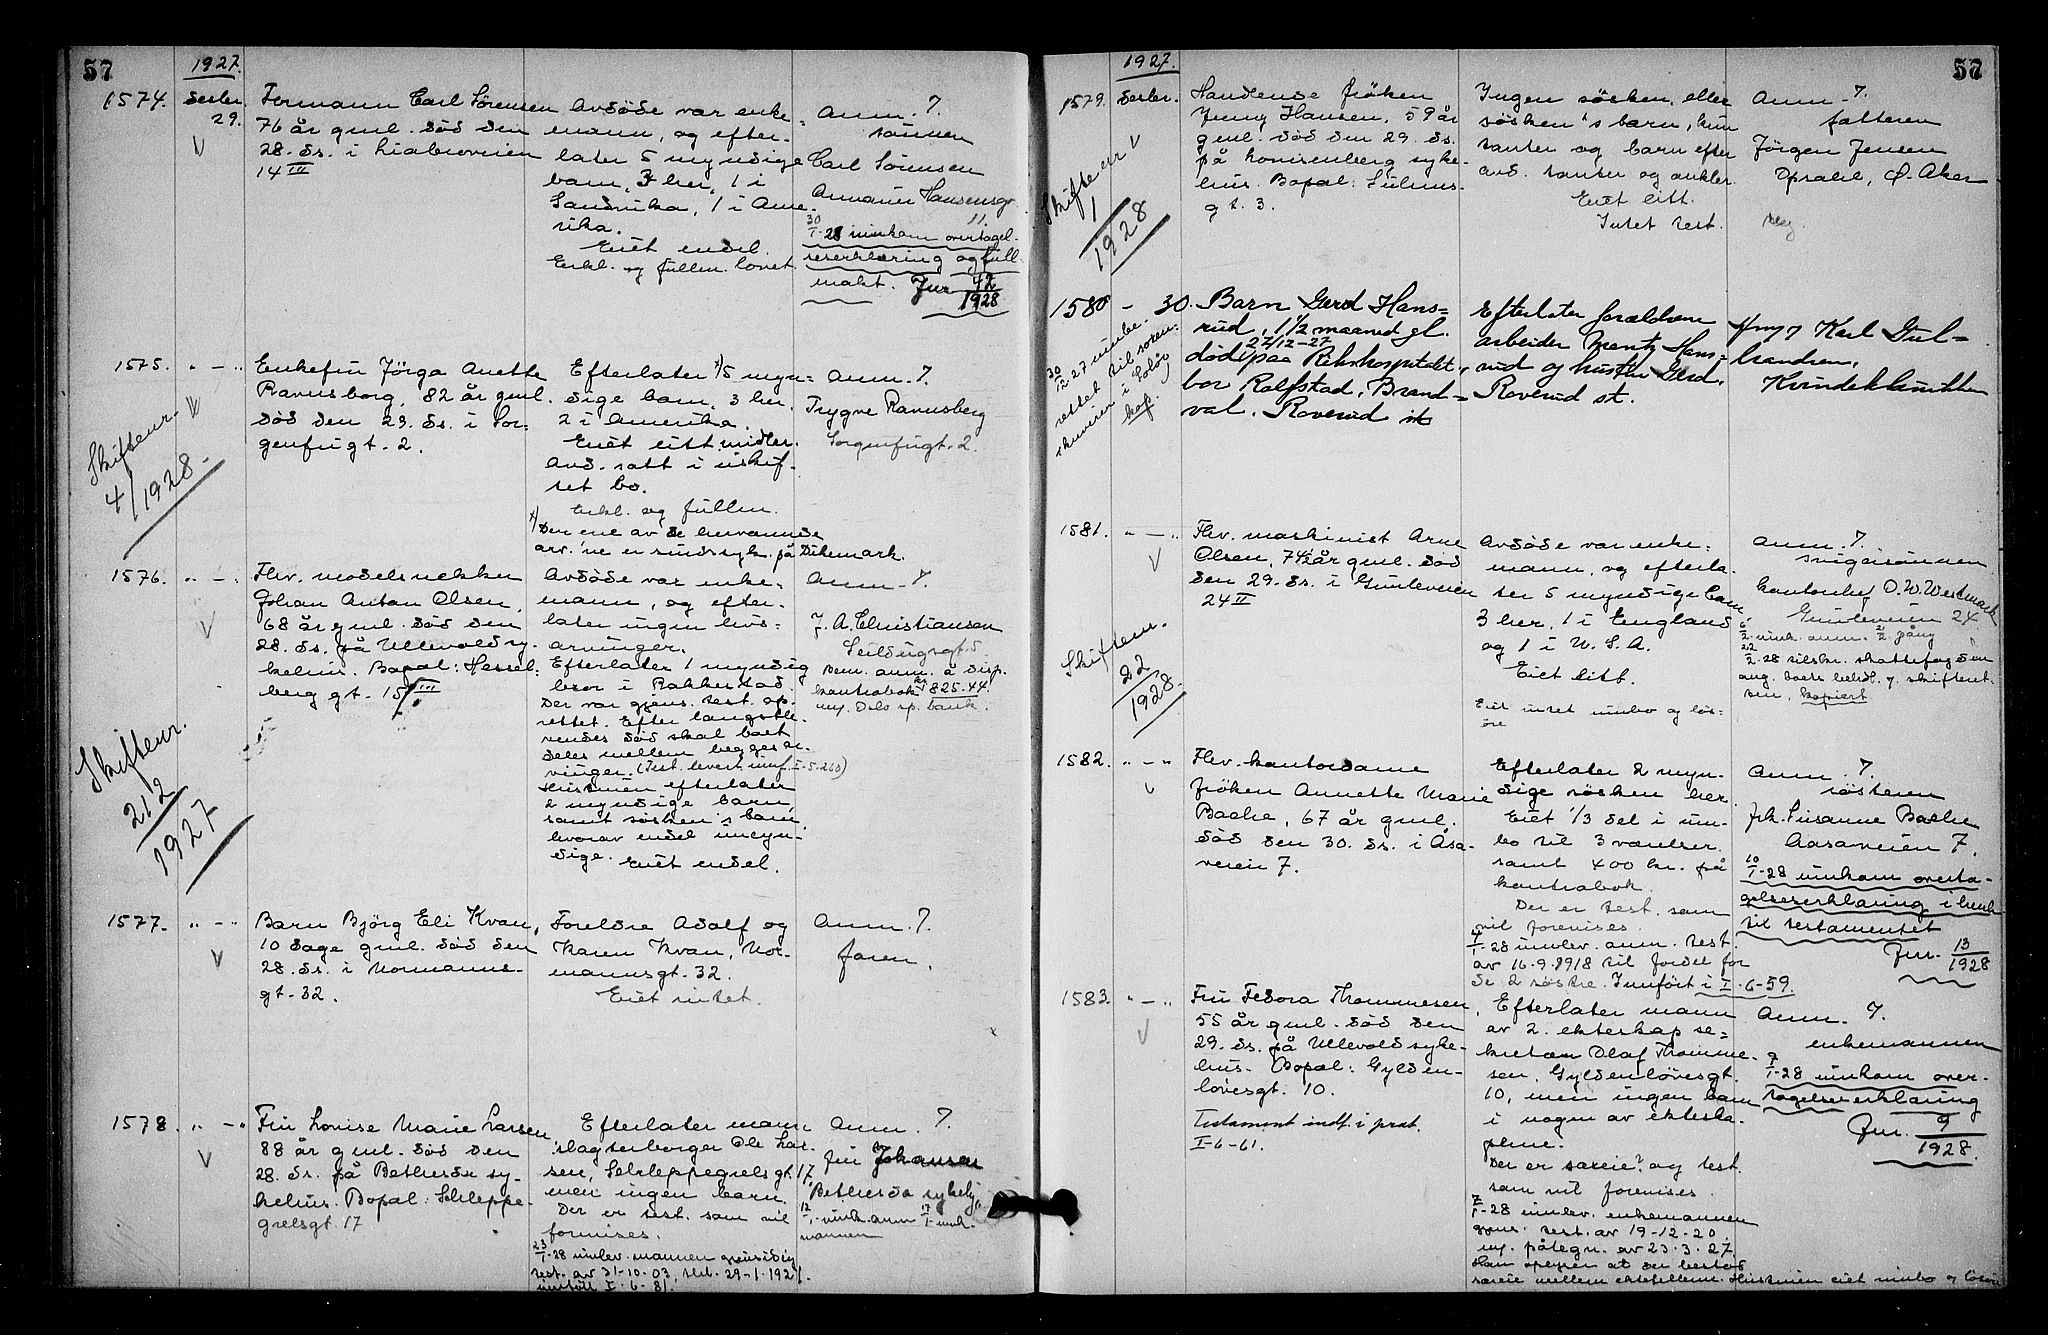 57
1927.
1574.
Desbr.
29.
Formann Carl Sørensen
76 år gml. død den
28. ds. i Liabroveien
14 III
Avdøde var enke-
mann, og efter-
later 5 myndige
barn, 3 her, 1 i
Sandvika, 1 i Ame-
rika.
Eiet endel.
Erkl. og fullm. lovet.
Anm. 7.
sønnen
Carl Sörensen
Armauer Hansensgt.
11.
30/I-28 innkom overtagel-
seserklæring og full-
makt. Jnr 42/1928
1575.
" — "
Skiftenr.
4/1928.
Enkefru Jörga Anette
Ravnsborg, 82 år gml.
död den 29. ds. i Sor-
genfrigt. 2.
Efterlater x/5 myn-
dige barn, 3 her,
2 i Amerika.
Eiet litt midler.
Avd. satt i uskif-
tet bo.
Erkl. og fullm.
x/ Den ene av de herværende
arv.'ne er sindssyk på Dikemark.
Anm. 7.
Trygve Ravnsberg
Sorgenfrigt. 2.
1576.
" — "
Skiftenr.
212
1927
Fhv. modelsnekker
Johan Anton Olsen,
68 år gml. död den
28. ds. på Ullevold sy-
kehus. Bopæl: Hessel-
berg gt. 15 III
Avdöde var enke-
mann, og efter-
later ingen livs-
arvinger.
Efterlater 1 myndig
bror i Rakkestad.
Der var gjens. test. op-
rettet. Efter længstle-
vendes död skal boet
deles mellem begges ar-
vinger. (Test. levert innf. I-5-260)
Hustruen efterlater
2 myndige barn,
samt søsken's barn,
hvorav endel umyn-
dige. Eiet endel.
Anm. 7.
J. A. Christiansen
Seildugsgt. 5.
Dem. anm. å disp.
kontrabok kr 825.44
i Oslo sp. bank.
1577.
" — "
Barn Björg Eli Kvan,
10 dage gml. död den
28. ds. i Normanns-
gt. 32.
Foreldre Adolf og
Karen Kvan, Nor-
mannsgt. 32.
Eiet intet.
Anm. 7.
faren.
1578.
" — "
Fru Lovise Marie Larsen,
88 år gml. död den
28. ds. på Bethesda sy-
kehus. Bopæl: Schleppe-
grelsgt. 17
Efterlater mann
slagterborger Ole Lar-
sen, Schleppegrelsgt. 17,
men ingen barn.
Der er test. som vil
forevises.
23/I-28 innlev. mannen gjensidig
test. av 31-10-03, 29-1-1921.
innfört I-6-81.
Anm. 7.
fru Johansen
Bethesda sykehj.
mannen
57
1927.
1579.
Desbr.
Skiftenr
1
1928
Handlende fröken
Jenny Hansen, 59 år
gml. död den 29. ds.
på Lovisenberg syke-
hus. Bopæl: Suhms-
gt. 3.
Ingen sösken, eller
sösken's barn, kun
tanter og barn efter
avd. tanter og onkler
Eiet litt.
Intet test.
Anm. 7.
fetteren
Jörgen Jensen
Opsahl, Ø. Aker
1580
— 30.
30/12-27 innbe-
rettet til soren-
skriveren i Solör
kop.
Barn Gerd Hans-
rud, 1 1/2 maaned gl.
död 27/12-27 paa Rikshospitalet,
bor Rolfstad, Brand-
val. Roverud st.
Efterlater forældrene
arbeider Mentz Hans-
rud og hustru Gerd,
Roverud st.
Karl Gul-
brandsen,
Kvindeklinikken
1581.
" — "
Skiftenr.
22
1928.
Fhv. maskinist Arne
Olsen, 74 1/2 år gml. död
den 29. ds. i Gimleveien
24 II
Avdöde var enke-
mann, og efterla-
ter 5 myndige barn,
3 her, 1 i England
og 1 i U.S.A.
Eiet litt.
Eiet intet innbo og lös-
öre
Anm. 7.
svigersönnen
kontorchef O. W. Westmark
Gimleveien 24
-28 tilskr. skattefogden
ang. boets behdl. v. skifteret-
ten, kopiert
1582.
" — "
Fhv. kontordame
fröken Annette Marie
Bache, 67 år gml.
död den 30. ds. i Åsa-
veien 7.
Efterlater 2 myn-
dige sösken her.
Eiet 1/3 del i inn-
bo til 3 værelser
samt 400 kr. på
kontrabok.
Der er test. som
vil forevises.
4/I-28 innlev. anm. test.
av 16-9-1918 til fordel for
de 2 söstre. Innfört i I-6-59.
Anm. 7.
sösteren
frk. Susanne Bache
Aasaveien 7.
10/I-28 innkom overta-
gelseserklæring i henh.
til testamentet
Jnr. 13/1928
1583.
" — "
Fru Fedora Thommesen,
55 år gml. död den
29. ds. på Ullevold syke-
hus. Bopæl: Gylden-
lövesgt. 10.
Testament indf. i prot.
I-6-61.
Efterlater mann
av 2. ekteskap se-
kretær Olaf Thomme-
sen, Gyldenlövesgt.
10, men ingen barn
i nogen av ekteska-
pene.
Der er særeie? og test.
som vil forevises.
7/I-28 innlev. enkemannen
gjens. test. av 19-12-20.
m. påtegn. av 23-3-27.
Han opgir at der bestod
særeie mellem ektefellene. Hustruen eiet innbo og lösöre
Anm. 7.
enkemannen
9/I-28 innkom over-
tagelseserklæring
Jnr. 9/1928.